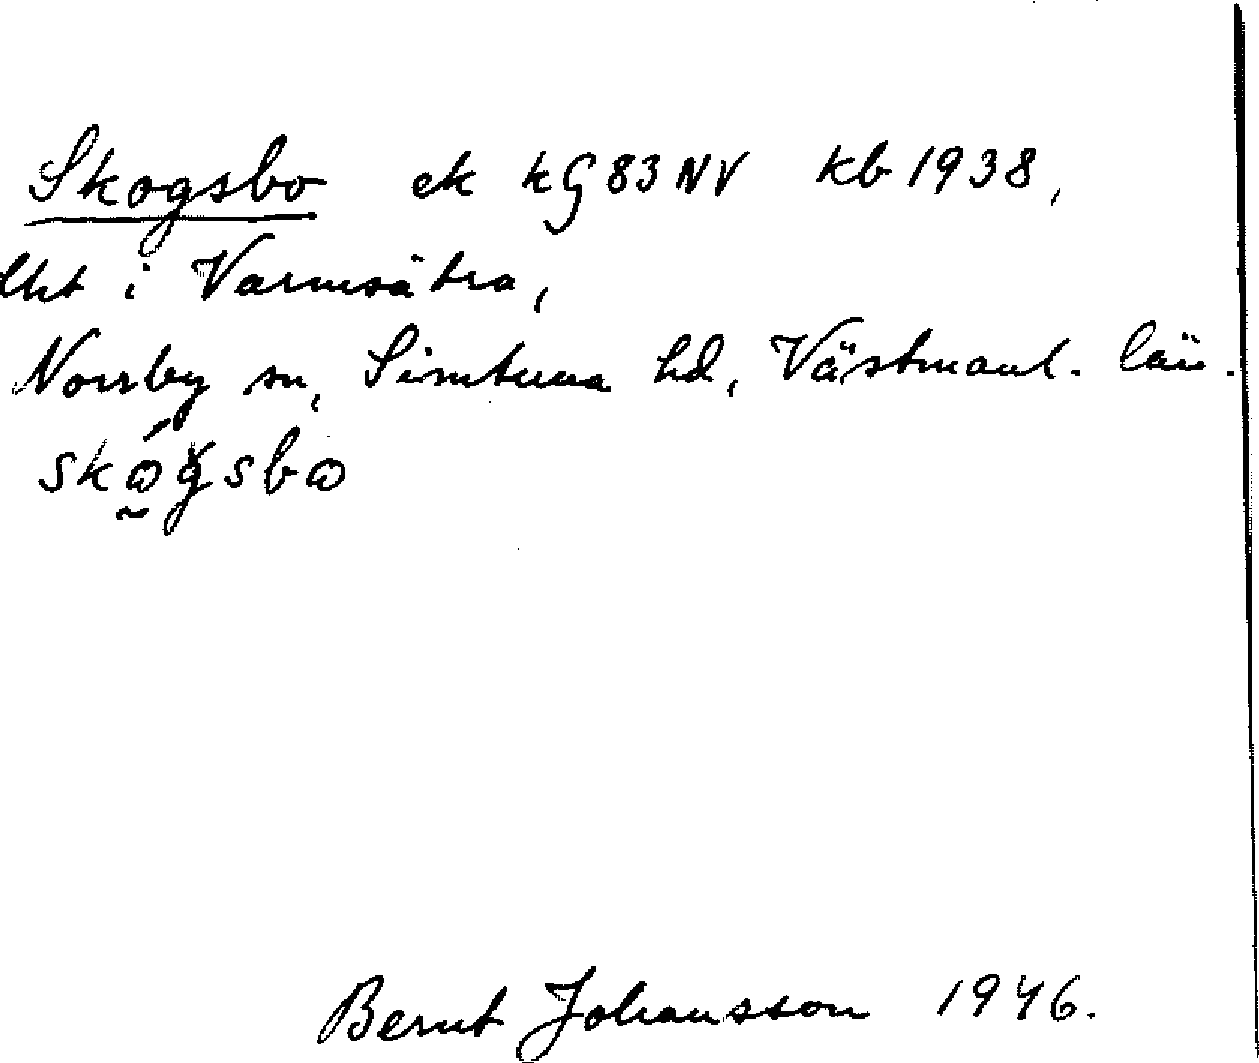 Skogsbo ek kG 83 NV kb 1938,
lht i Varmsätra,
Norrby sn, Simtuna hd, Västmanl. län.
skǫ́gsbo
Bernt Johansson 1946.